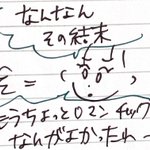 なんなん
その結末
もうちょっとロマンチック
なんがよかったわー